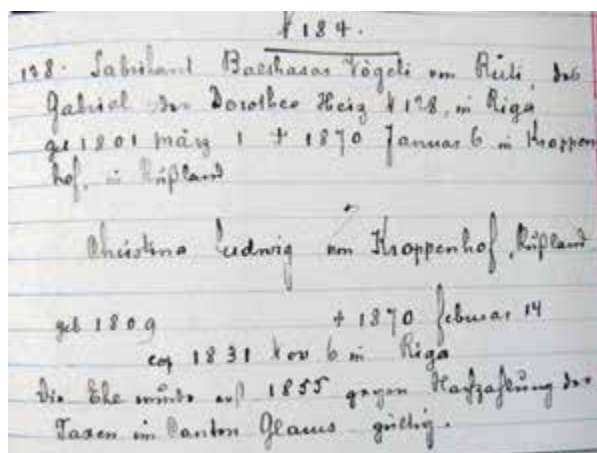 № 184.
128. Fabrikant Balthasar Vögeli von Rüti, des
Gabriel der Dorothea Heiz № 128, in Riga
geb 1801 März 1 + 1870 Januar 6 in Kroppen
hof, in Rußland
Christina Ludwig von Kroppenhof, Rußland
geb 1809 + 1870 Februar 14
cop 1831 Nov 6 in Riga
Die Ehe wurde erst 1855 gegen Nachzahlung der
Taxen im Canton Glarus gültig.